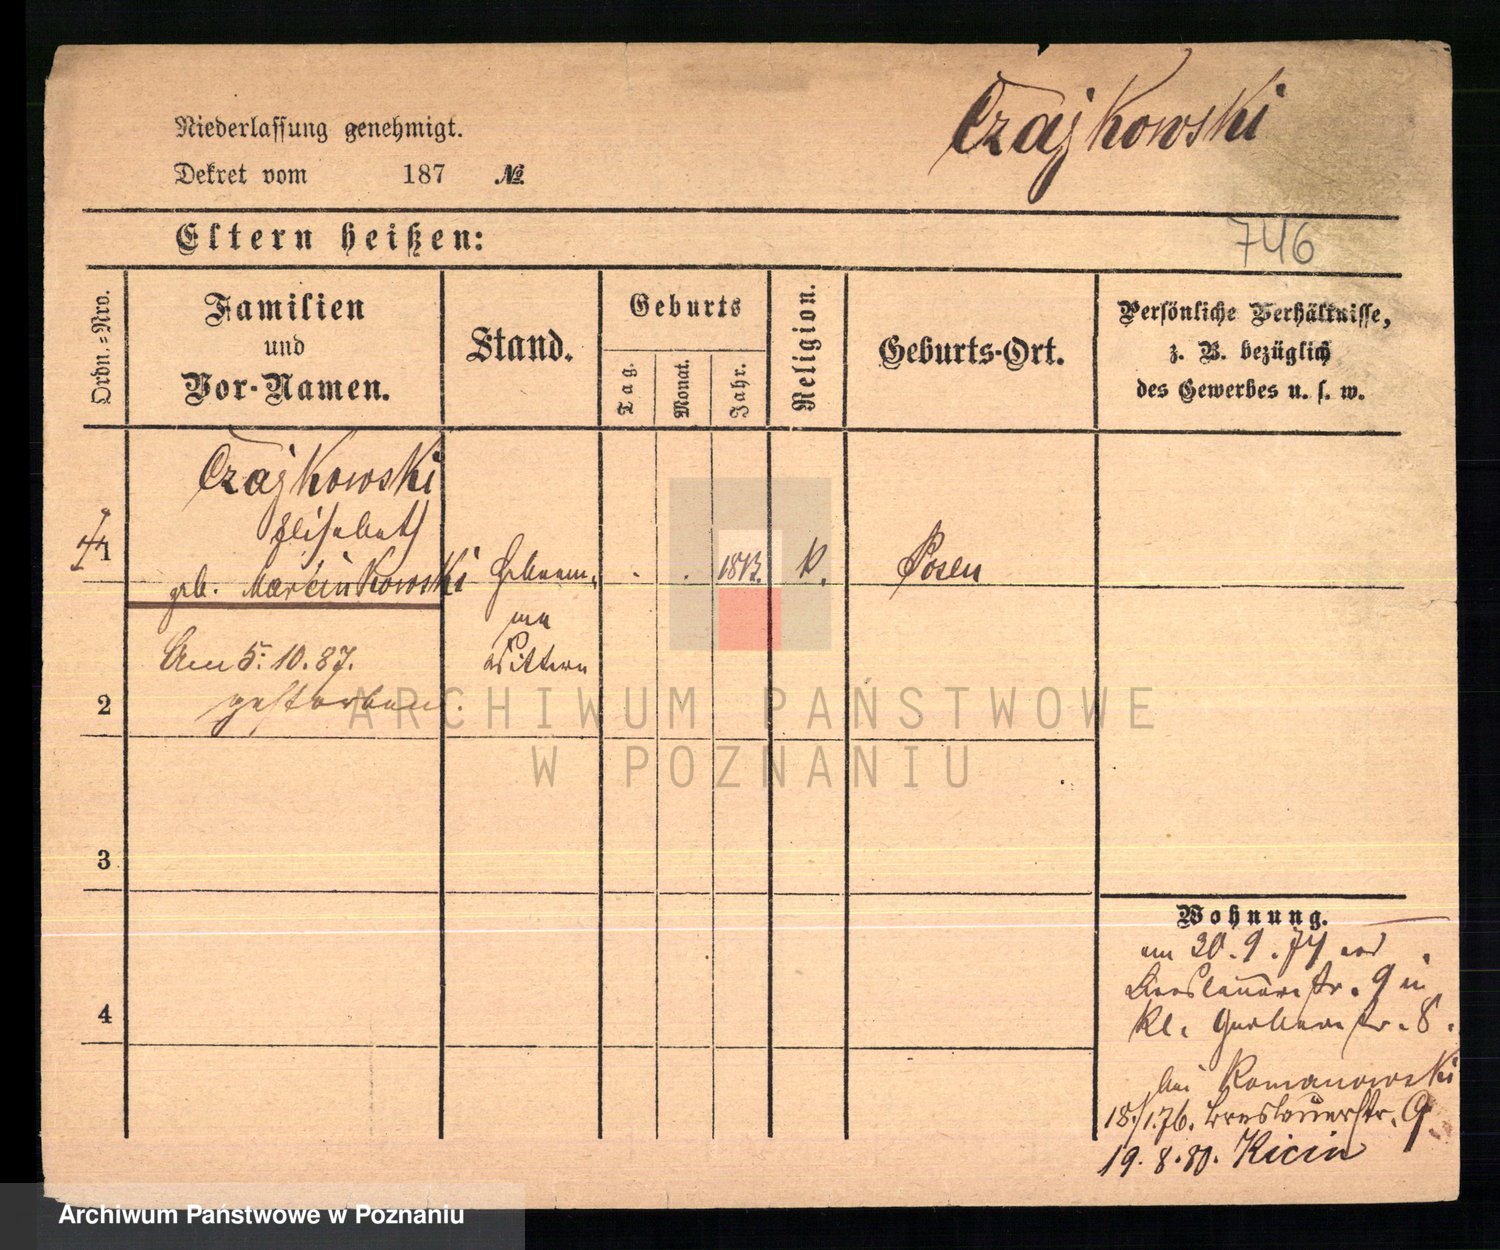 Czajkowski
Niederlassung genehmigt.
Dekret vom 187 №
Eltern heißen:
746
Ordn.=Nro.
Familien
und
Vor-Namen.
Stand.
Geburts
Tag.
Monat.
Jahr.
Religion.
Geburts-Ort.
Persönliche Verhältnisse,
z. B. bezüglich
des Gewerbes u. s. w.
Czajkowski
Elisabeth
1
geb. Marcinkowski
1813.
K.
Posen
Am 5. 10. 87.
gestorben.
2
3
4
Wohnung.
am 20. 9. 74
Breslauerstr. 9 in
Kl. Gerberstr. 8.
bei Romanowski
18/1.76. Breslauerstr. 9
19. 8. 80. Kicin
ARCHIWUM PAŃSTWOWE
W POZNANIU
Archiwum Państwowe w Poznaniu